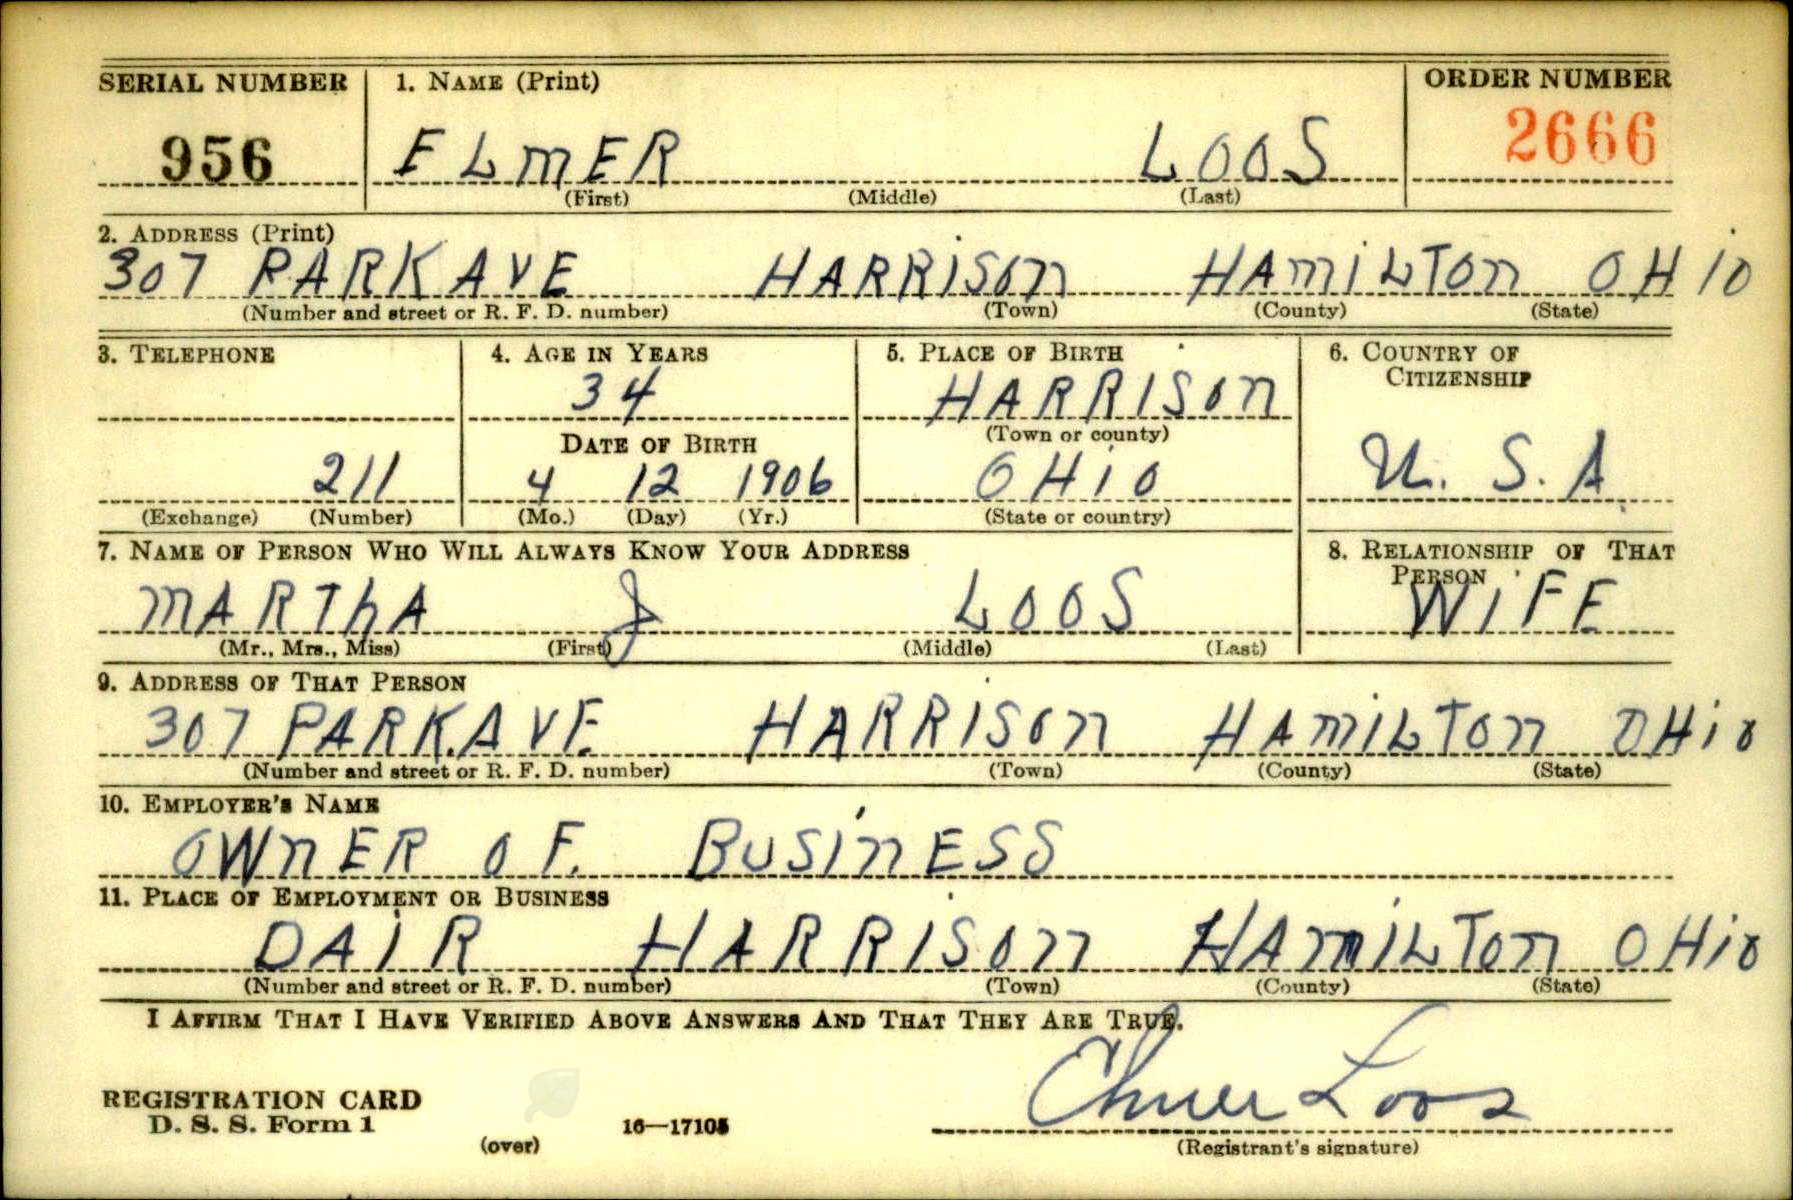 SERIAL NUMBER 1. NAME (Print) ORDER NUMBER
956 ELMER LOOS 2666
(First) (Middle) (Last)
2. ADDRESS (Print)
307 PARK AVE HARRISON HAMILTON OHIO
(Number and street or R. F. D. number) (Town) (County) (State)
3. TELEPHONE 4. AGE IN YEARS 5. PLACE OF BIRTH 6. COUNTRY OF
CITIZENSHIP
34 HARRISON
DATE OF BIRTH (Town or county)
211 4 12 1906 OHIO U. S. A
(Exchange) (Number) (Mo.) (Day) (Yr.) (State or country)
7. NAME OF PERSON WHO WILL ALWAYS KNOW YOUR ADDRESS 8. RELATIONSHIP OF THAT
PERSON
MARThA J LOOS WIFE
(Mr., Mrs., Miss) (First) (Middle) (Last)
9. ADDRESS OF THAT PERSON
307 PARK.AVE HARRISON HAMILTON OHIO
(Number and street or R. F. D. number) (Town) (County) (State)
10. EMPLOYER'S NAME
OWNER OF. BUSINESS
11. PLACE OF EMPLOYMENT OR BUSINESS
DAIR HARRISON HAMILTON OHIO
(Number and street or R. F. D. number) (Town) (County) (State)
I AFFIRM THAT I HAVE VERIFIED ABOVE ANSWERS AND THAT THEY ARE TRUE.
Elmer Loos
REGISTRATION CARD
D. S. S. Form 1
(over) 16—17105 (Registrant's signature)